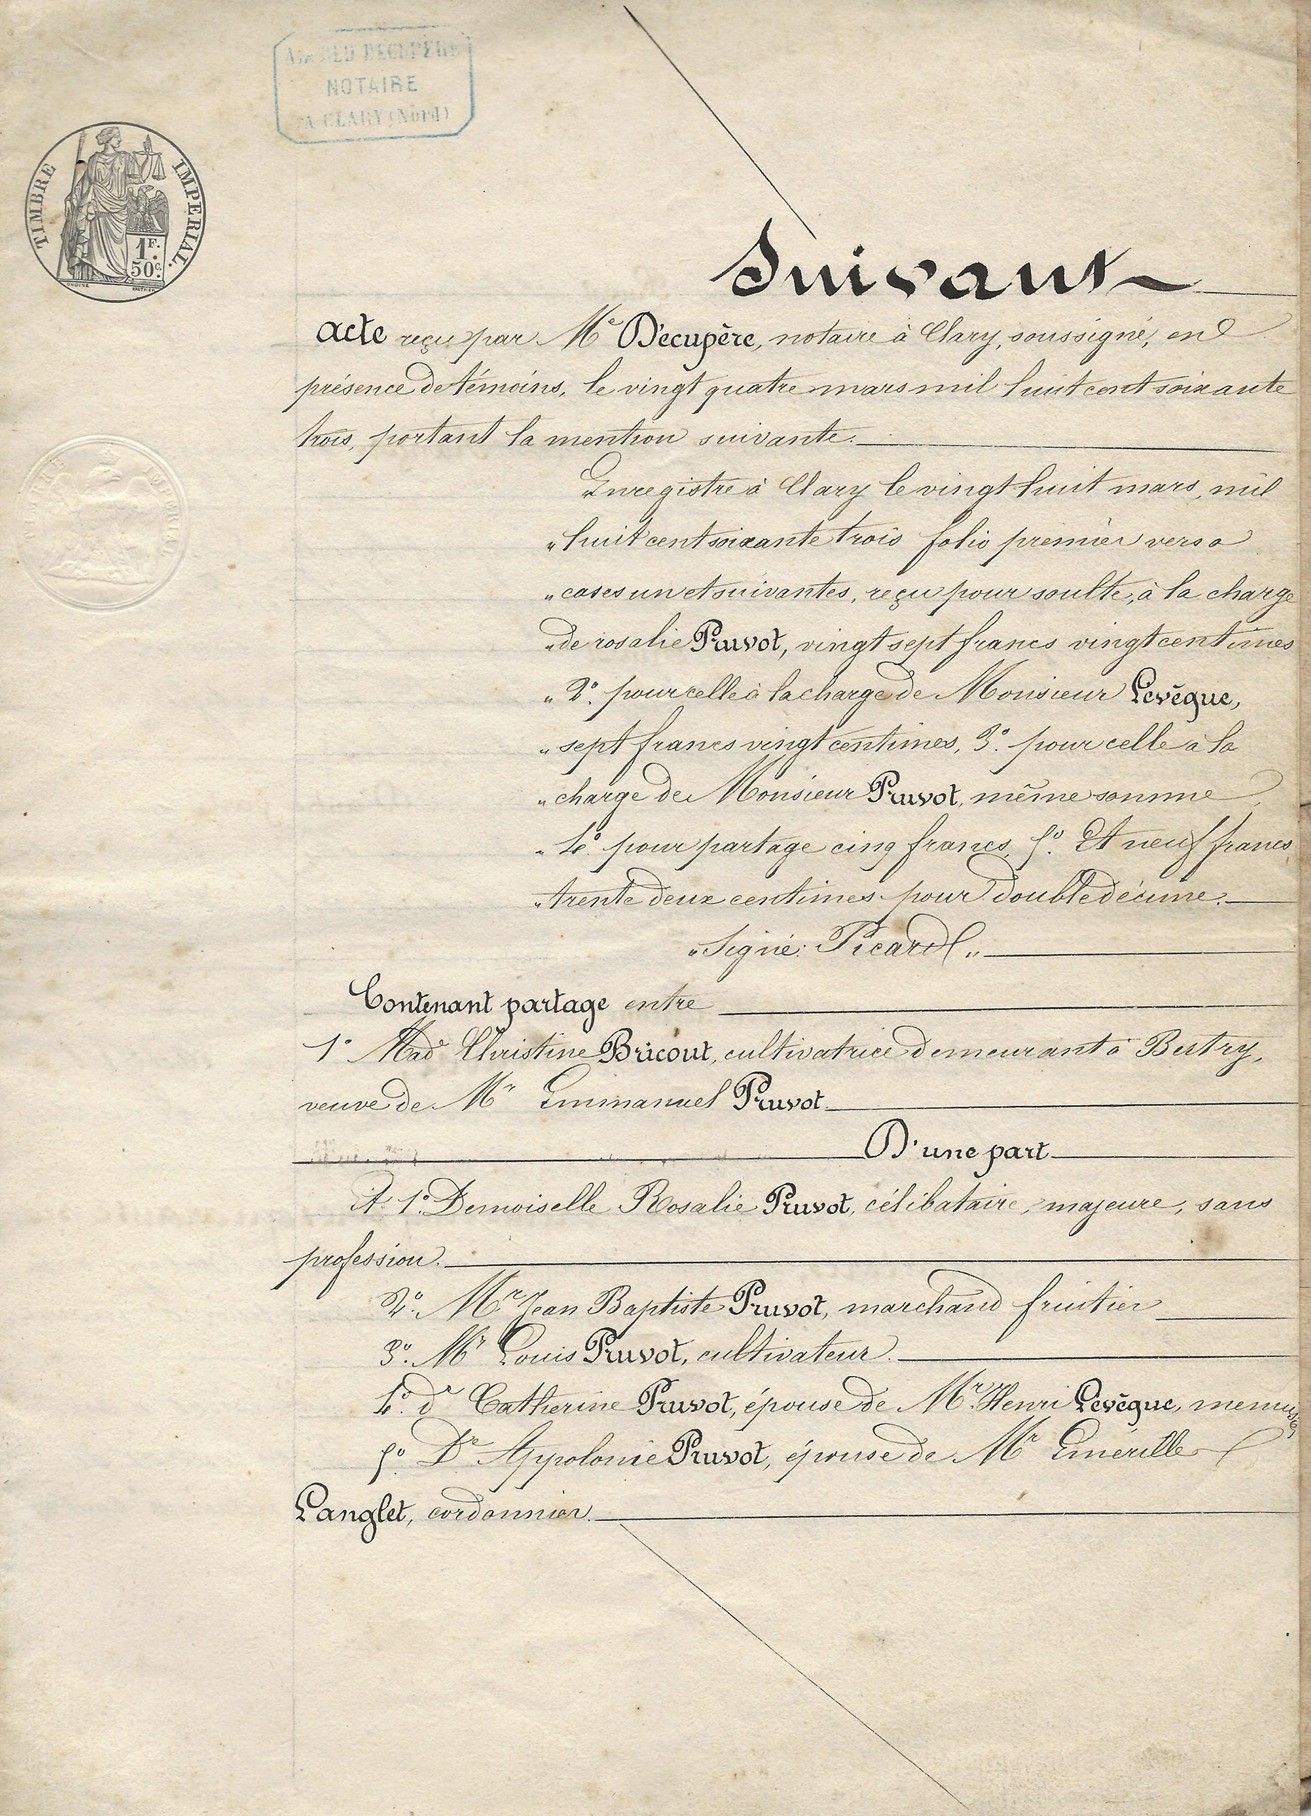 NOTAIRE
A CLARY (Nord)
TIMBRE IMPERIAL.
1F.
50c.
Suivant
acte reçu par Me Décupère, notaire à Clary, soussigné, en
présence de témoins, le vingt quatre mars mil huit cent soixante
trois, portant la mention suivante.
Enregistré à Clary le vingt huit mars, mil
" huit cent soixante trois folio premier verso
" cases un et suivantes, reçu pour soulte, à la charge
" de rosalie Pruvot, vingt sept francs vingt centimes
" 2o. pour celle à la charge de Monsieur Levêque,
" sept francs vingt centimes, 3o. pour celle à la
" charge de Monsieur Pruvot, même somme
" 4o. pour partage cinq francs, 5o. Et neuf francs,
" trente deux centimes pour double décime.
" Signé: Picard "
Contenant partage entre
1o Made Christine Bricout, cultivatrice demeurant à Bertry,
veuve de Mr Emmanuel Pruvot.
D'une part
Et 1o. Demoiselle Rosalie Pruvot, célibataire, majeure, sans
profession.
2o. Mr Jean Baptiste Pruvot, marchand fruitier
3o. Mr Louis Pruvot, cultivateur.
4o. de Catherine Pruvot, épouse de Mr. Henri Levêque,
5o. De Appolonie Pruvot, épouse de Mr Emérille
Langlet, cordonnier.